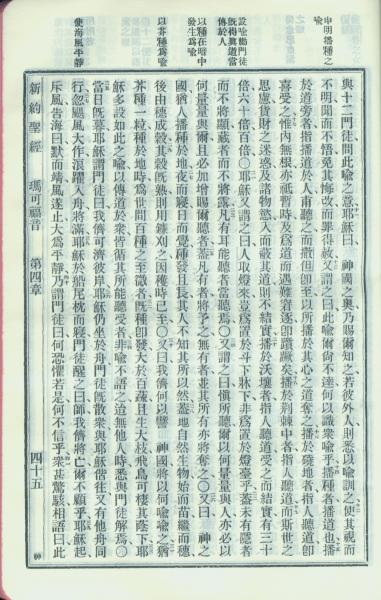 申明播種之
喻
設喻勸門徒
既得真道當
傳於人
以種在暗中
發生為喻
以芥種為喻
使海風平靜
與十二門徒問此喻之意耶穌曰 神國之奧乃賜爾知之若彼外人則悉以喻訓之使其視而
不明聞而不悟免其悔改而罪得赦又謂之曰此喻爾尚不達何以識衆喻乎播種者播道也播
於道旁者指播道於人甫聽之而撒但卽至以所播於其心之道奪之播於磽地者指人聽道卽
喜受之惟內無根亦祇暫時及爲道而遇難窘逐卽躓蹶矣播於荊棘中者指人聽道而斯世之
思慮貨財之迷惑及諸物慾入而蔽其道則不結實播於沃壤者指人聽道受之而結實有三十
倍六十倍百倍〇耶穌又謂之曰人取燈來豈爲置於斗下牀下非爲置於燈臺乎蓋未有隱者
而不將顯藏者而不將露凡有耳能聽者當聽焉〇又謂之曰愼所聽爾以何量量與人亦必以
何量量與爾且必加增賜爾聽者蓋凡有者將予之無有者並其所有亦將奪之〇又曰 神之
國猶人播種於地夜而寢日而覺種發且長其人不知其所以然蓋地自然生物始而苗繼而穗
後由穗成穀旣穀熟則用鐮刈之因穫時已至〇又曰我儕何以譬 神國將以何喻喻之猶
芥種一粒種於地時爲世間百種之至微者旣種卽發大於百蔬且生大枝飛鳥可棲其蔭下耶
穌多設如此之喻以傳道於衆皆循其所能聽受者非喻不語之迨無他人時悉與門徒解焉〇
當日旣暮耶穌謂門徒曰我儕可濟彼岸耶穌仍坐於舟門徒旣散衆與耶穌偕往又有他舟同
行忽颶風大作浪躍入舟將滿耶穌於船尾枕而寢門徒醒之曰師我儕將亡爾不顧乎耶穌起
斥風告海曰默而靖風遂止大爲平靜乃謂門徒曰何恐懼若是何不信乎衆甚驚駭相語曰此
新約聖經 瑪可福音 第四章 四十五